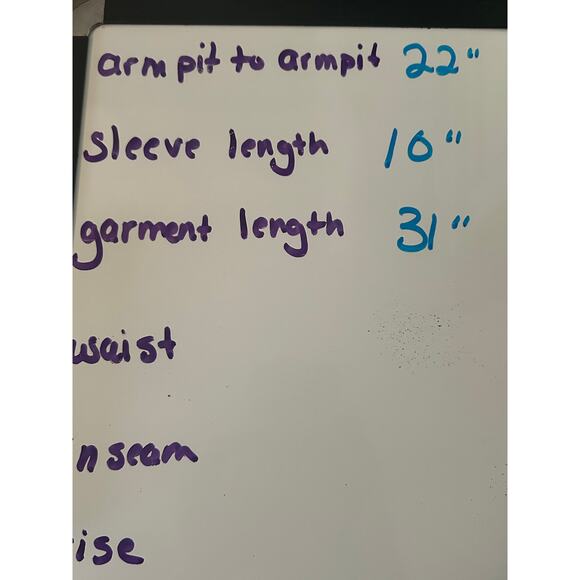 armpit to armpit 22"
sleeve length 10"
garment length 31"
waist
nseam
ise